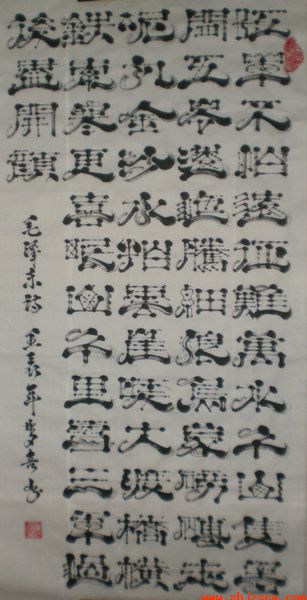 紅軍不怕遠征難萬水千山隻等
閒五岭逶迤騰細浪烏蒙磅礴走
泥丸金沙水拍雲崖暖大渡橋橫
鐵索寒更喜岷山千里雪三軍過
後盡開顏
毛澤東詩 年 书